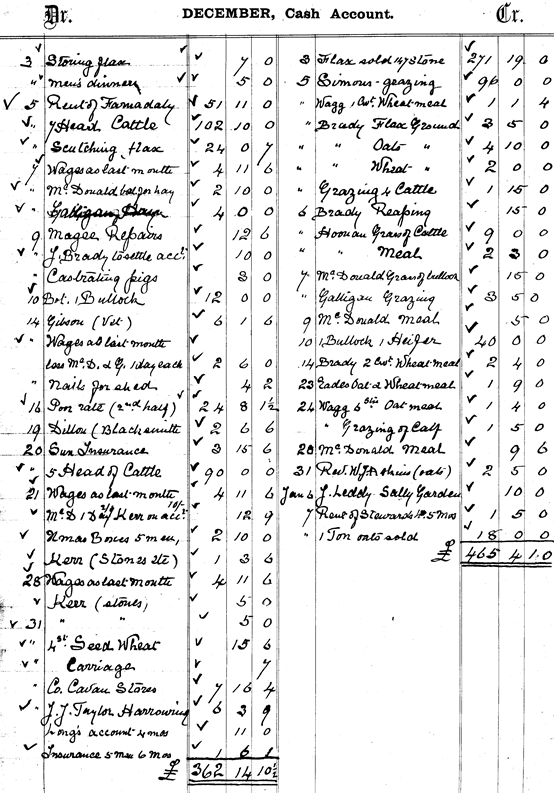 Dr. DECEMBER, Cash Account. Cr.
3 Storing flax 7 0
" men's dinners 5 0
5 Rent of Farnadaly 51 11 0
" 7 Head Cattle 102 10 0
" Scutching flax 24 0 7
7 Wages as last month 4 11 6
" McDonald bal. for hay 2 10 0
" Galligan 4 0 0
9 Magee Repairs 12 6
" J. Brady to settle acct. 10 0
" Castrating pigs 3 0
10 Bot. 1 Bullock 12 0 0
14 Gibson (Vet) 6 1 6
" Wages as last month
less McD. & G. 1 day each 2 6 0
" Nails for shed 4 2
16 Poor rate (2nd half) 24 8 1½
19 Dillon (Blacksmith 2 6 6
20 Sun Insurance 3 15 6
" 5 Head of Cattle 90 0 0
21 Wages as last month 4 11 6
McD 1 Day Kerr on acct. 10/- 12 9
Xmas Boxes 5 men, 2 10 0
Kerr (Stones etc) 1 3 6
28 Wages as last month 4 11 6
Kerr (stones) 5 0
31 " " 5 0
" 4 st. Seed Wheat 15 6
" Carriage 7
" Co. Cavan Stores 7 16 4
" J. J. Taylor Harrowing 6 3 9
Long's account 4 mos 11 0
Insurance 5 men 6 mos 1 6 1
£ 362 14 10½
3 Flax sold 147 Stone 271 19 0
5 Simons - grazing 96 0 0
" Wagg 1 Cwt. Wheatmeal 1 1 4
" Brady Flax Ground 3 5 0
" " Oats " 4 10 0
" " Wheat " 2 0 0
" Grazing 4 Cattle 1 15 0
6 Brady Reaping 15 0
" Noonan Grass of Cattle 9 0 0
" " Meal 2 3 0
7 McDonald Grass of bullock 15 0
" Galligan Grazing 3 5 0
9 McDonald meal 5 0
10 1 Bullock 1 Heifer 40 0 0
14 Brady 2 Cwt. Wheat meal 2 4 0
23 Eades Oat & Wheatmeal 1 9 0
24 Wagg 6 Stn Oat meal 1 4 0
" Grazing of Calf 1 5 0
28 McDonald Meal 9 6
31 Rev. W. J. Askins (oats) 2 5 0
Jan 6 J. Leddy Sally Garden 10 0
7 Rent of Stewards H. 5 mos 1 5 0
" 1 Ton oats sold 18 0 0
£ 465 4 10